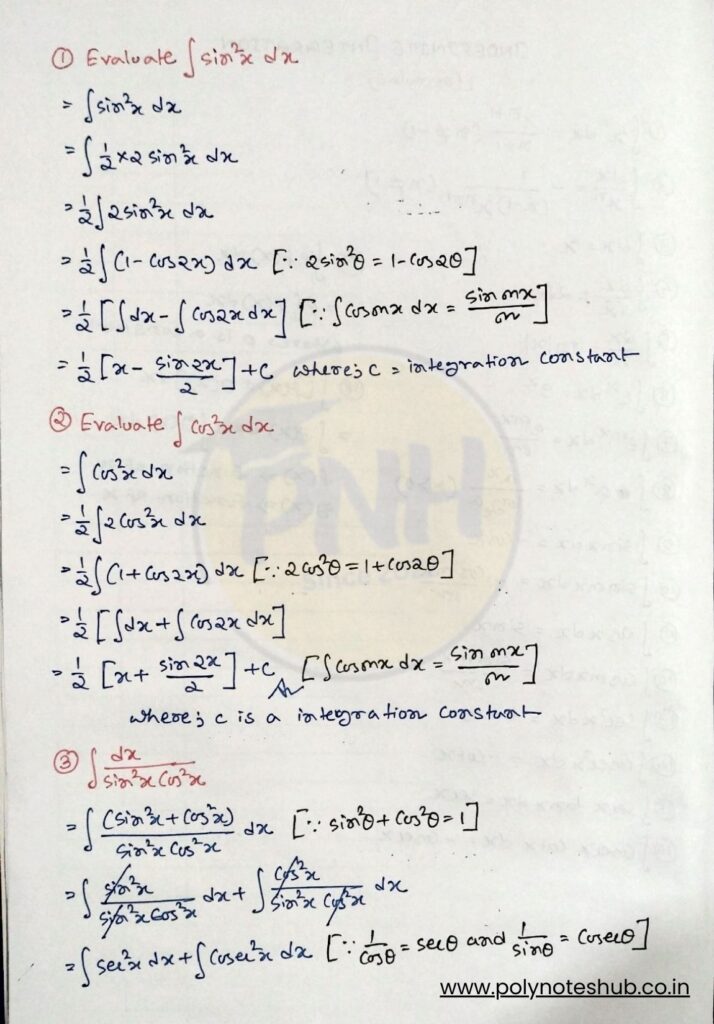 ① Evaluate ∫sin²x dx
= ∫sin²x dx
= ∫½×2 sin²x dx
= ½∫2sin²x dx
= ½∫(1-cos2x) dx [∵ 2sin²θ = 1-cos2θ]
= ½[∫dx - ∫cos2x dx] [∵ ∫cosmx dx = sin mx/m]
= ½[x - sin2x/2] + c where; c = integration constant
② Evaluate ∫cos²x dx
= ∫cos²x dx
= ½∫2cos²x dx
= ½∫(1+cos2x) dx [∵ 2cos²θ = 1+cos2θ]
= ½[∫dx + ∫cos2x dx]
= ½[x + sin2x/2] + c [∫cosmx dx = sin mx/m]
where; c is a integration constant
③ ∫dx/sin²x cos²x
= ∫(sin²x + cos²x)/sin²x cos²x dx [∵ sin²θ + cos²θ = 1]
= ∫sin²x/sin²x cos²x dx + ∫cos²x/sin²x cos²x dx
= ∫sec²x dx + ∫cosec²x dx [∵ 1/cosθ = secθ and 1/sinθ = cosecθ]
PNH
www.polynoteshub.co.in